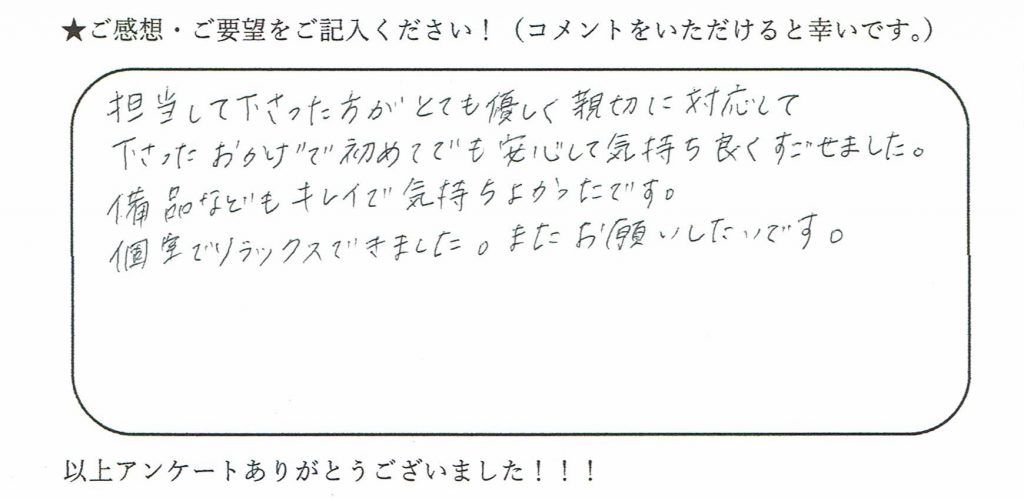 ★ご感想・ご要望をご記入ください！（コメントをいただけると幸いです。）
担当して下さった方がとても優しく親切に対応して
下さったおかげで初めてでも安心して気持ち良くすごせました。
備品などもキレイで気持ちよかったです。
個室でリラックスできました。またお願いしたいです。
以上アンケートありがとうございました！！！